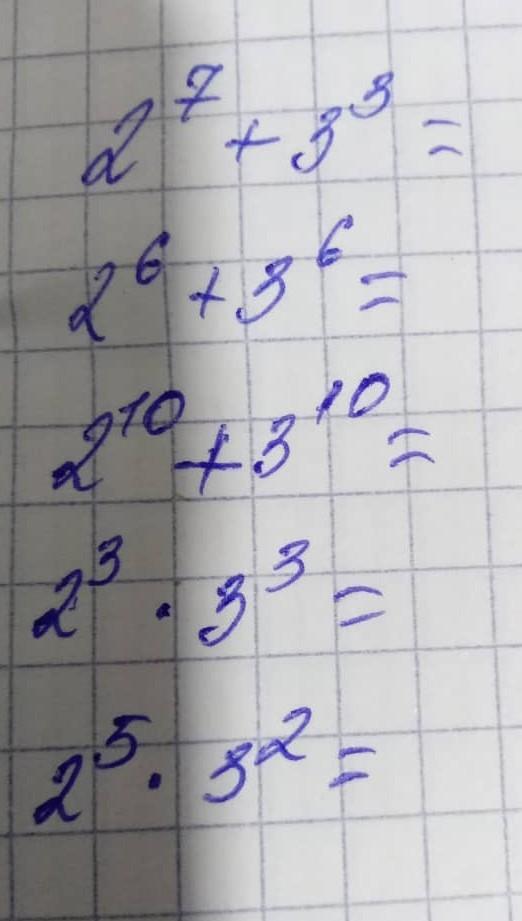 2⁷ + 3³ =
2⁶ + 3⁶ =
2¹⁰ + 3¹⁰ =
2³ · 3³ =
2⁵ · 3² =